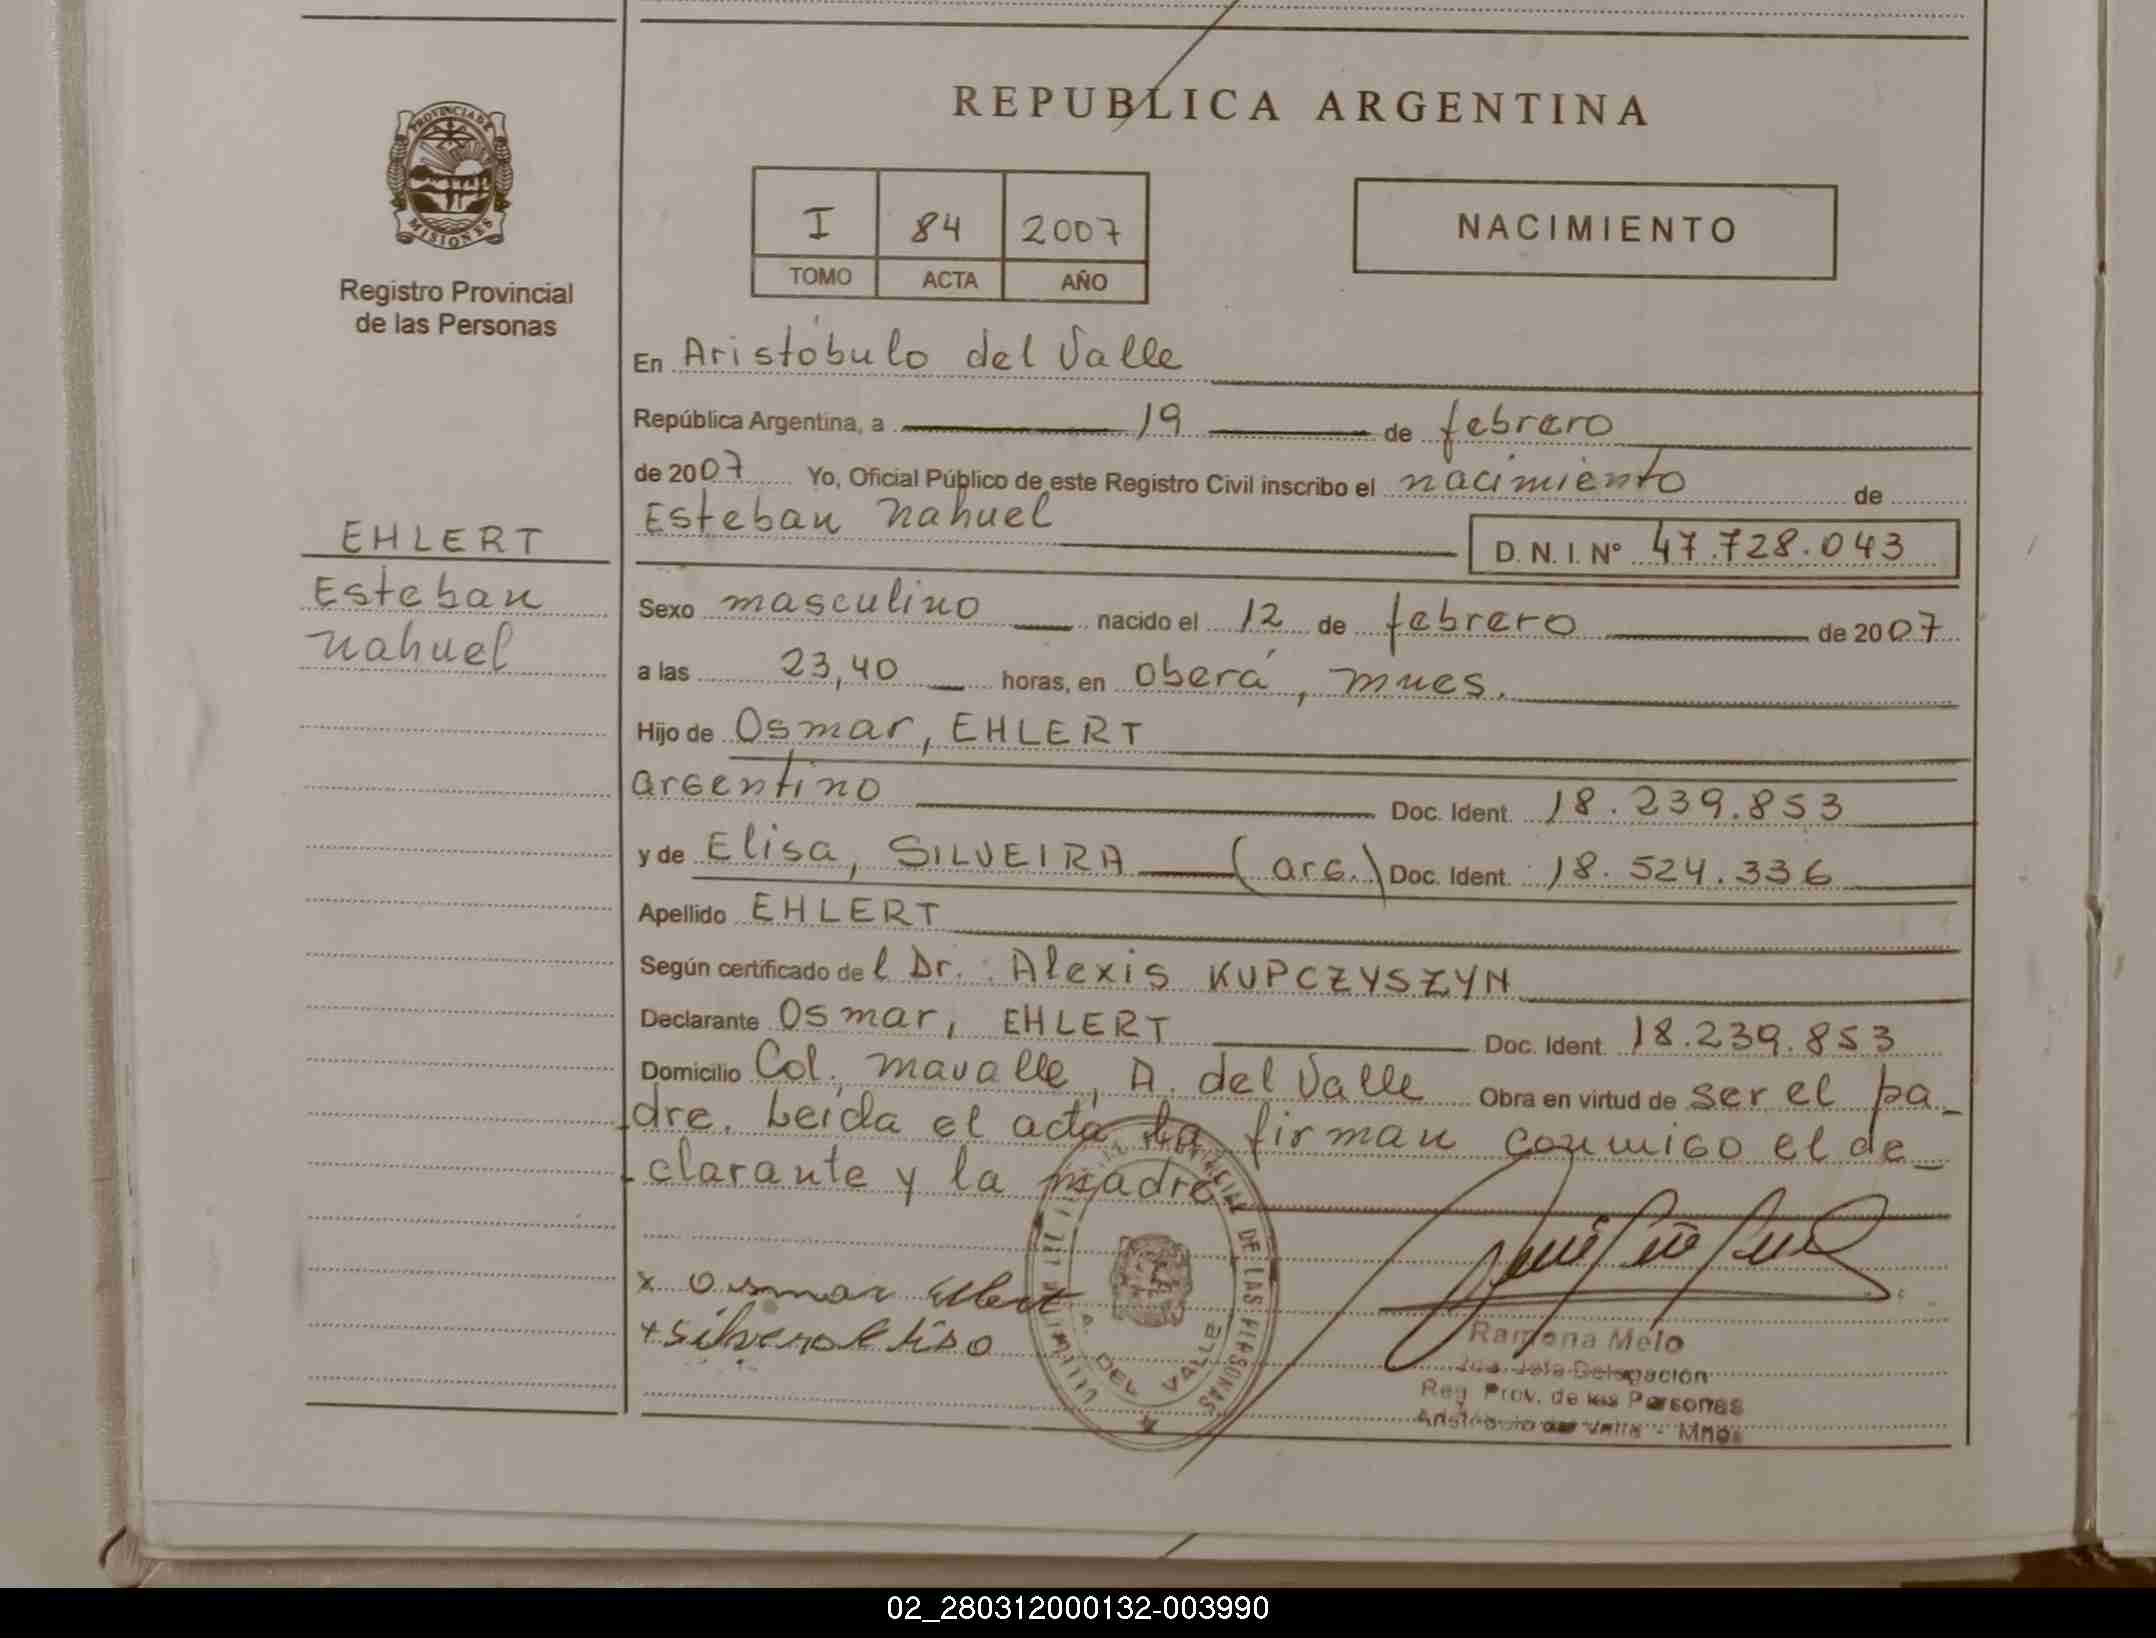 REPUBLICA ARGENTINA
PROVINCIA DE MISIONES
Registro Provincial
de las Personas
I 84 2007
TOMO ACTA AÑO
NACIMIENTO
En Aristóbulo del Valle
República Argentina, a 19 de febrero
de 2007 Yo, Oficial Público de este Registro Civil inscribo el nacimiento de
Esteban Nahuel
D. N. I. Nº 47.728.043
EHLERT
Esteban
Nahuel
Sexo masculino nacido el 12 de febrero de 2007
a las 23,40 horas, en Oberá, Mnes.
Hijo de Osmar, EHLERT
argentino Doc. Ident. 18.239.853
y de Elisa, SILVEIRA (arg.) Doc. Ident. 18.524.336
Apellido EHLERT
Según certificado de l Dr. Alexis KUPCZYSZYN
Declarante Osmar, EHLERT Doc. Ident. 18.239.853
Domicilio Col. Mavalle, A. del Valle Obra en virtud de ser el pa-
dre. Leída el acta la firman conmigo el de-
clarante y la madre
x Osmar Ehlert
DE LAS PERSONAS
A. DEL VALLE
Ramona Melo
Jefa Delegación
Reg. Prov. de las Personas
Aristóbulo del Valle - Mnes.
02_280312000132-003990